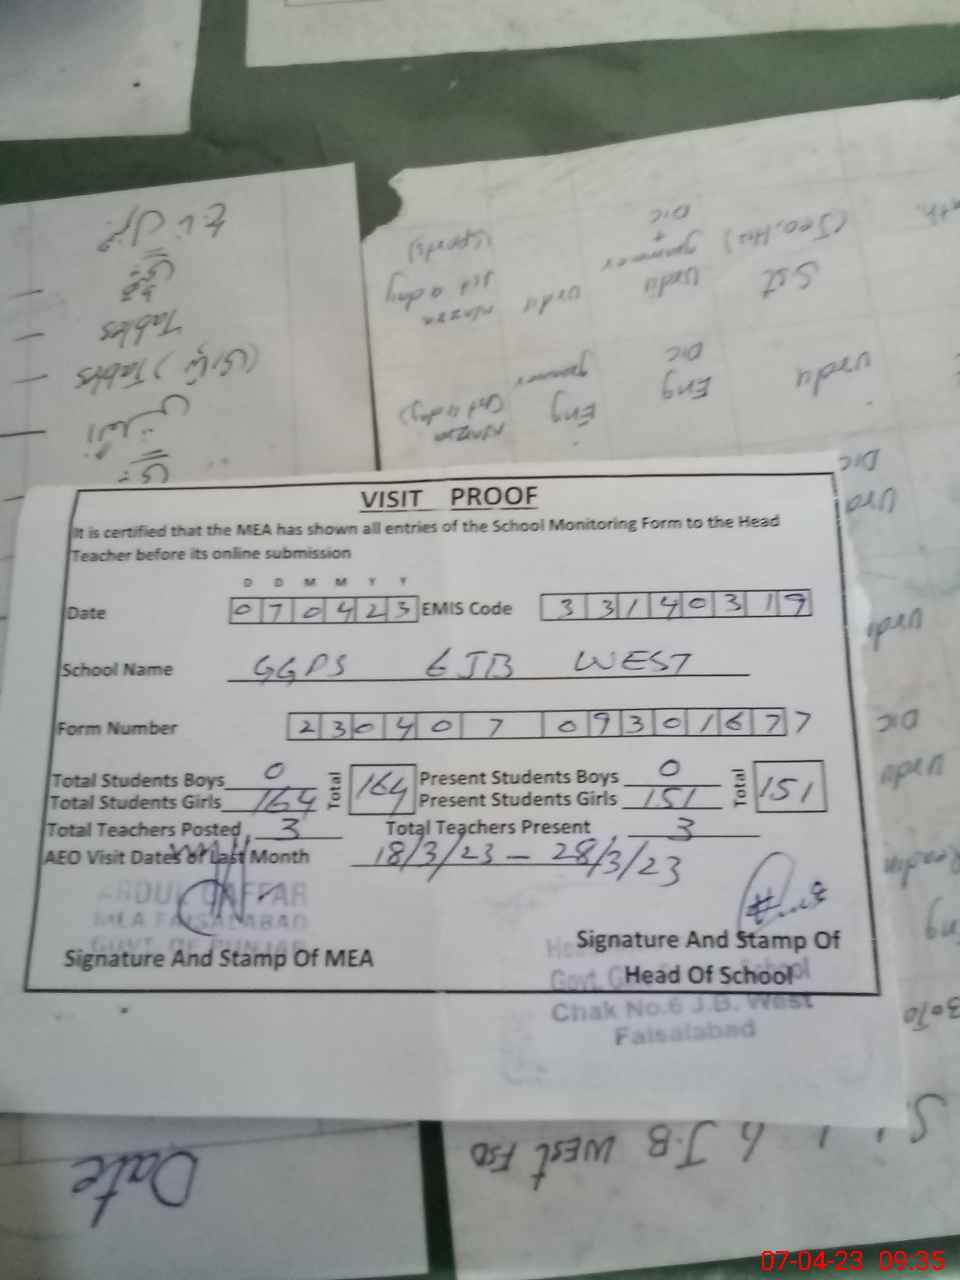 VISIT PROOF
It is certified that the MEA has shown all entries of the School Monitoring Form to the Head
Teacher before its online submission
D D M M Y Y
Date 070423 EMIS Code 33140319
School Name GGPS 6JB WEST
Form Number 230407 09301677
Total Students Boys 0 Total 164 Present Students Boys 0 Total 151
Total Students Girls 164 Present Students Girls 151
Total Teachers Posted 3 Total Teachers Present 3
AEO Visit Dates of Last Month 18/3/23 - 28/3/23
ABDUL GAFFAR
MEA FAISALABAD
GOVT. OF PUNJAB
Signature And Stamp Of MEA
Signature And Stamp Of
Head Of School
Govt. School
Chak No.6 J.B. West
Faisalabad
Tables
Tables
Sst
Urdu
+
Dic
Urdu
(Sports)
Urdu
Eng
Dic
Eng
Nazra
Dic
Urdu
Dic
Urdu
6 J.B West FSD
Date
07-04-23 09:35